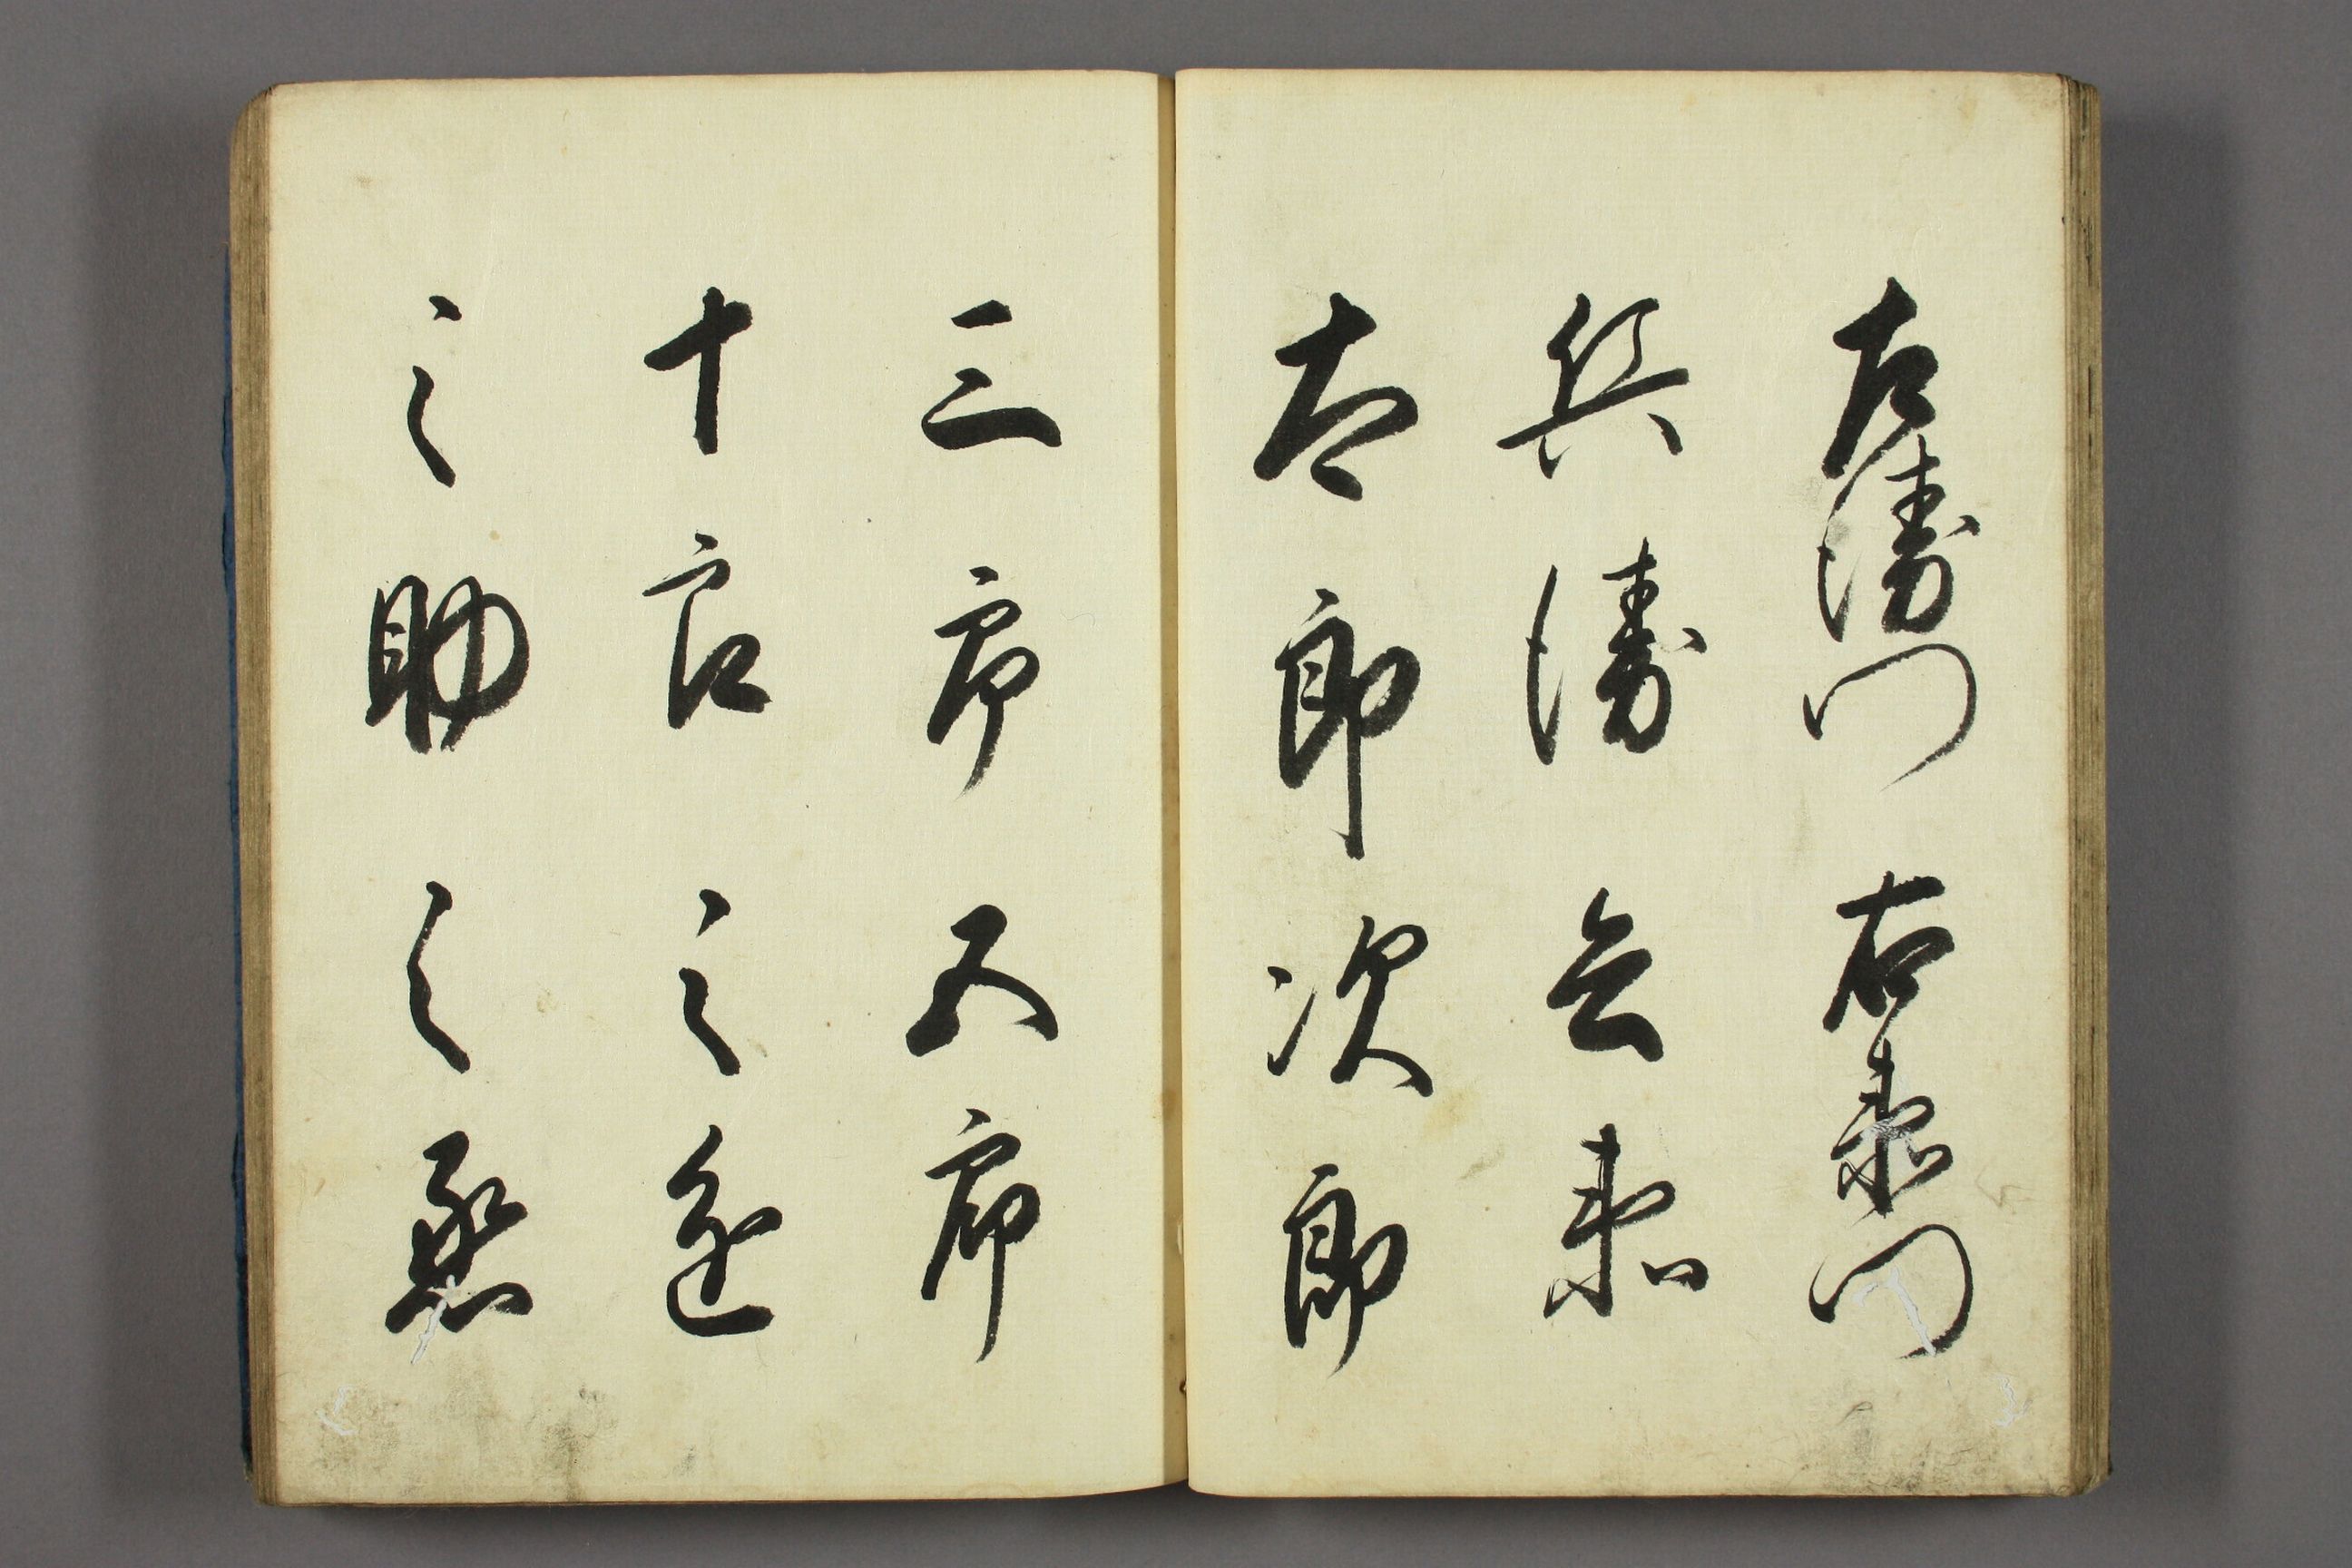 左衛門右衛門
兵衛兵衛
太郎次郎
三郎五郎
十郎之進
之助之丞